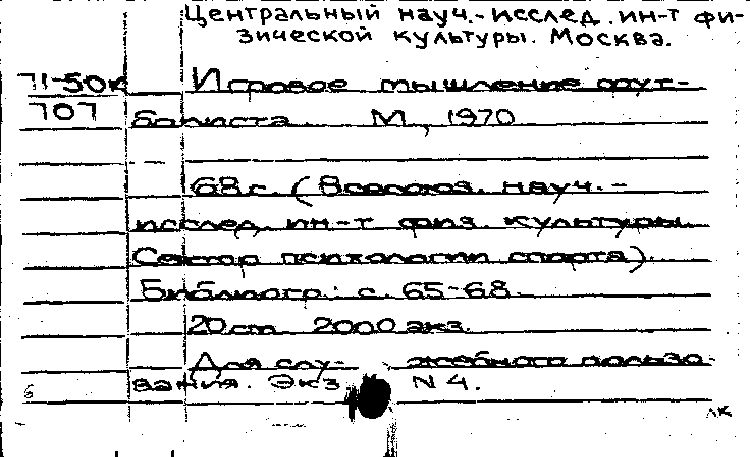 Центральный науч.-исслед. ин-т фи-
зической культуры. Москва.
71-50к
707
Игровое мышление фут-
болиста. М., 1970
68 с. (Всесоюз. науч.-
исслед. ин-т физ. культуры.
Сектор психологии спорта).
Библиогр.: с. 65-68.
20 см. 2000 экз.
Для слу- жебного пользо-
вания. Экз. N 4.
б
лк